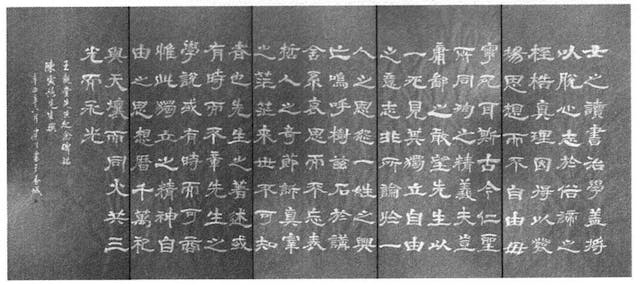 士之讀書治學蓋將
以脫心志於俗諦之
桎梏真理因得以發
揚思想而不自由毋
寧死耳斯古今仁聖
所同殉之精義夫豈
庸鄙之敢望先生以
一死見其獨立自由
之意志非所論於一
人之恩怨一姓之興
亡嗚呼樹兹石於講
舍系哀思而不忘表
哲人之奇節訴真宰
之茫茫來世不可知
者也先生之著述或
有時而不章先生之
學說或有時而可商
惟此獨立之精神自
由之思想曆千萬祀
與天壤而同久共三
光而永光
王觀堂先生紀念碑銘
陳寅恪先生撰